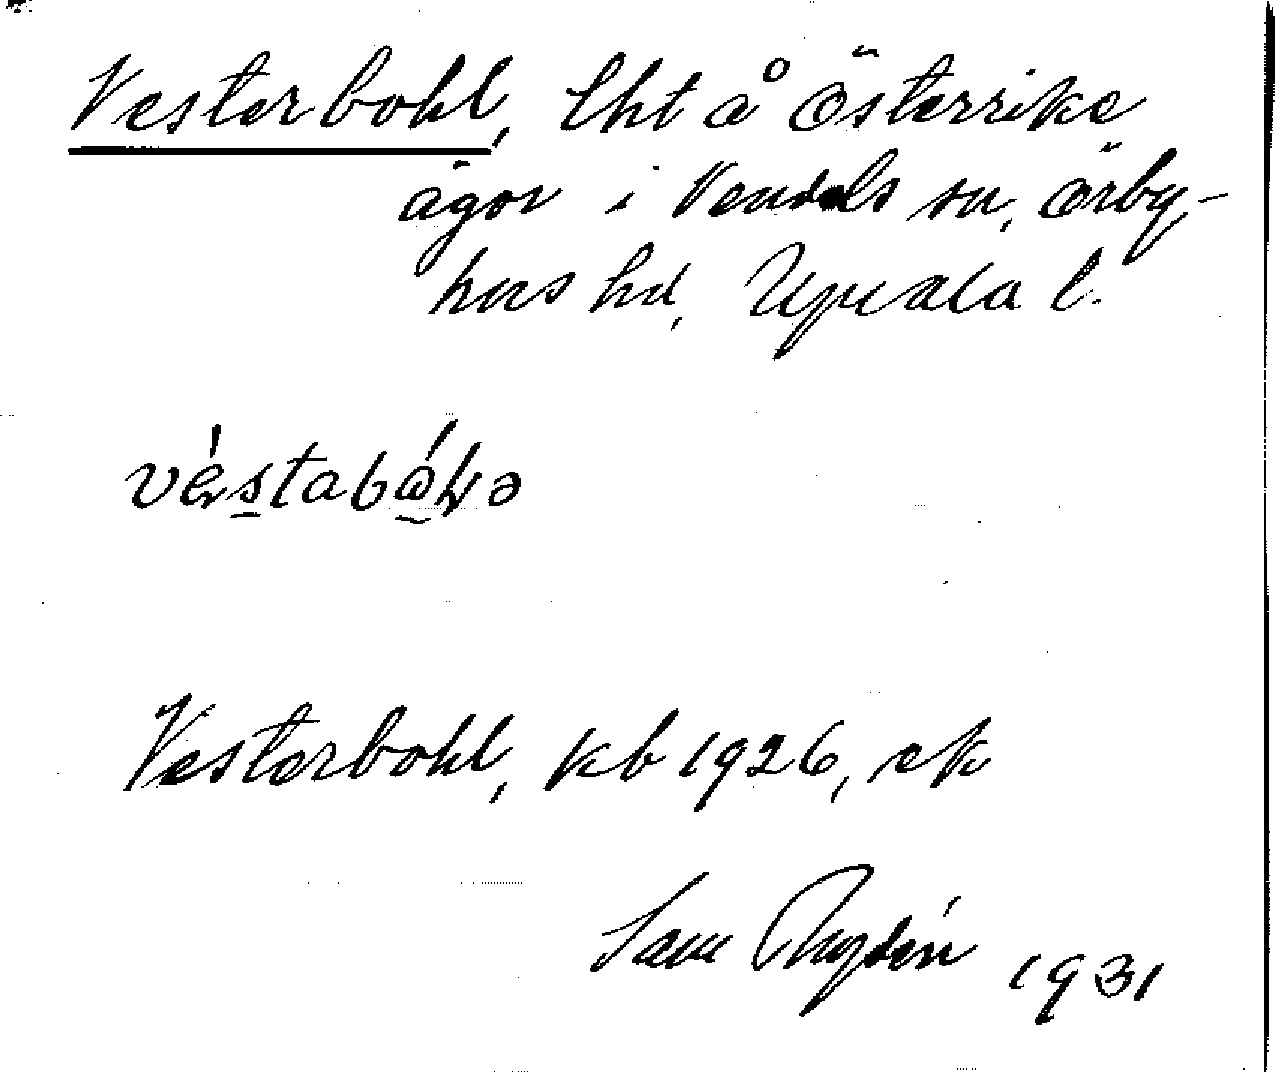 Vesterbohl, lht å Österrike
ägor i Vendels sn, Örby-
hus hd, Upsala l.
Vesterbohl, kb 1926, ek
Sam Rydén 1931